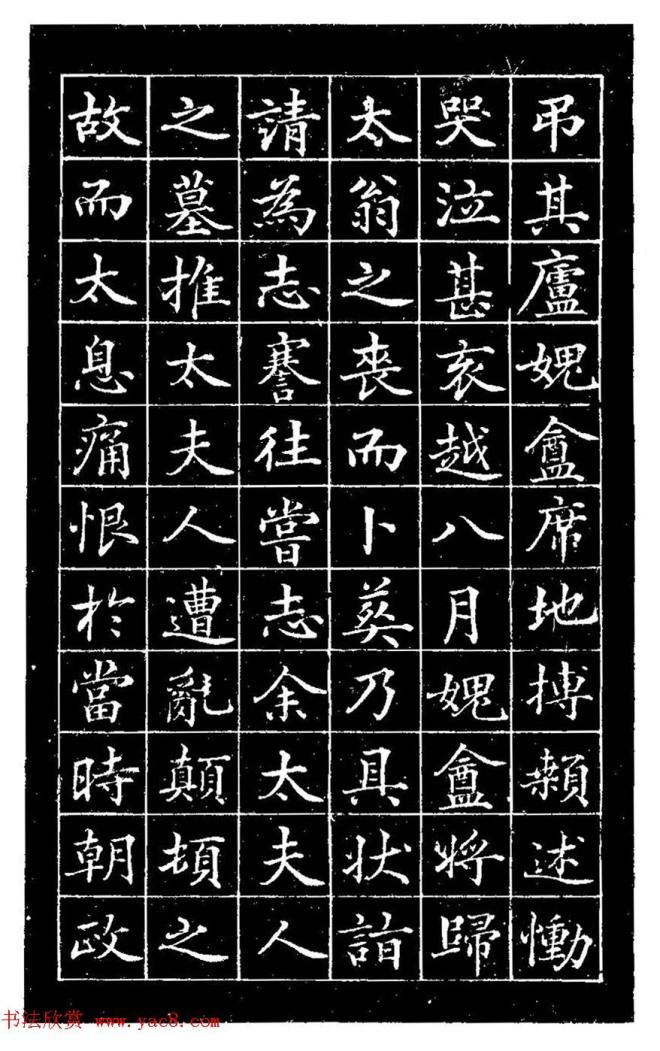 弔其廬媿盦席地搏顙述慟
哭泣甚哀越八月媿盦將歸
太翁之喪而卜葬乃具狀詣
請為志謇往嘗志余太夫人
之墓推太夫人遭亂顛頓之
故而太息痛恨於當時朝政
书法欣赏 www.yac8.com